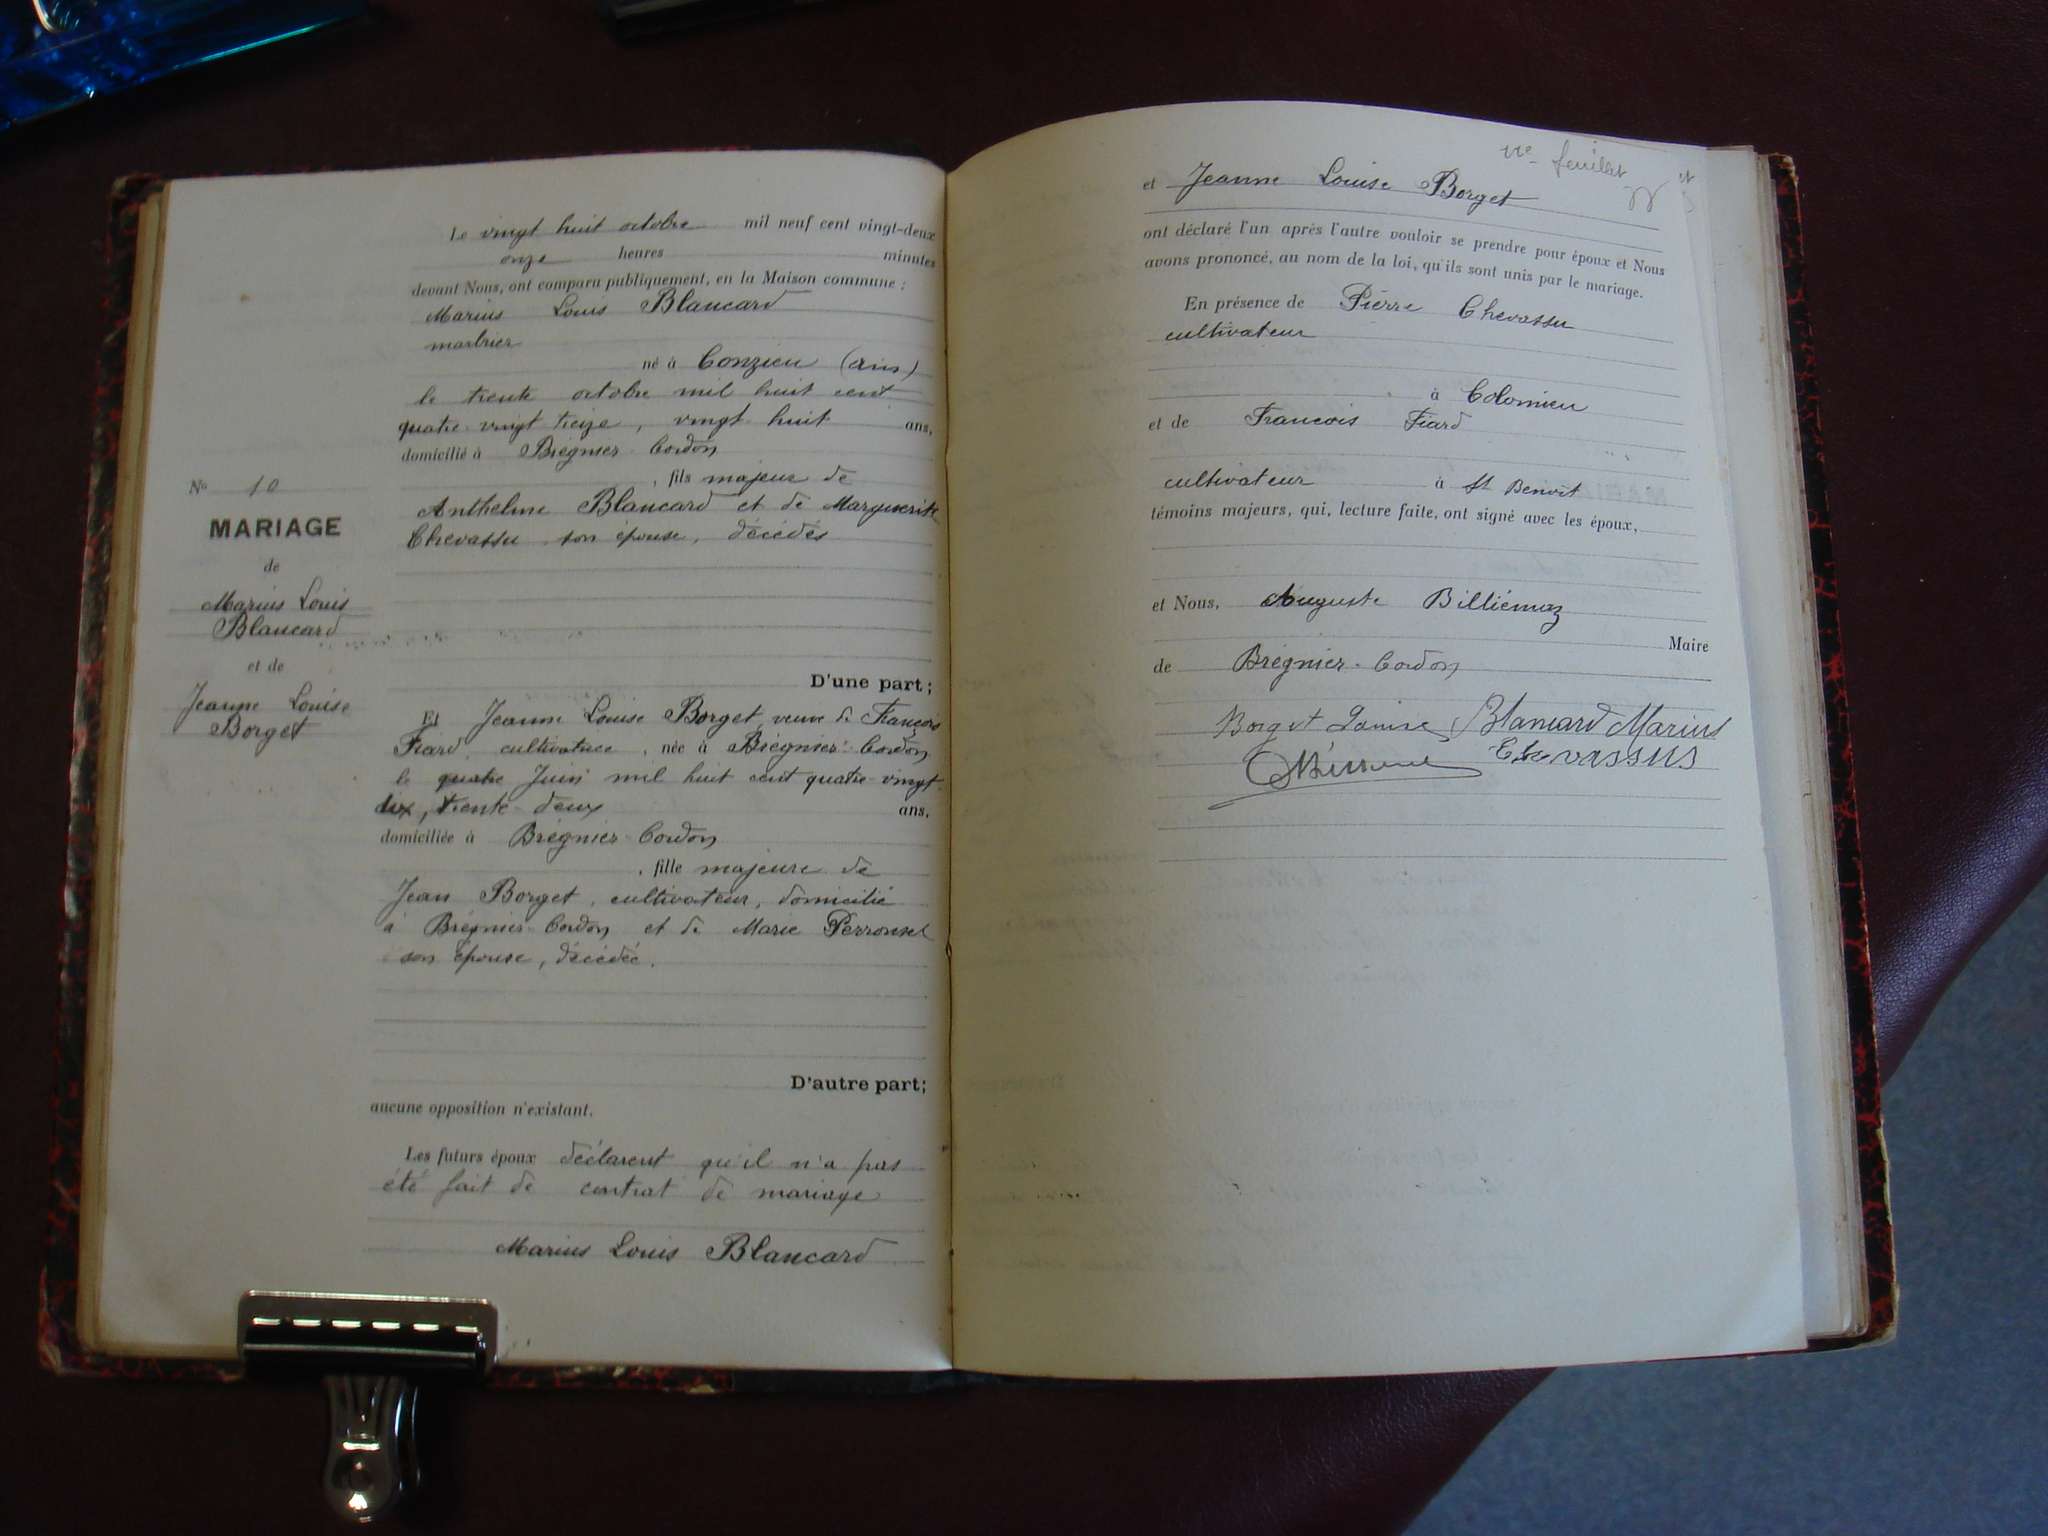 Le vingt huit octobre mil neuf cent vingt-deux
onze heures minutes
devant Nous, ont comparu publiquement, en la Maison commune :
Marius Louis Blancard
marbrier
né à Conzieu (ain)
le trente octobre mil huit cent
quatre-vingt treize, vingt huit ans,
domicilié à Brégnier-Cordon
, fils majeur de
Anthelme Blancard et de Marguerite
Chevassu son épouse, décédés
N° 10
MARIAGE
de
Marius Louis
Blancard
et de
Jeanne Louise
Borget
D'une part;
Et Jeanne Louise Borget veuve de François
Fiard cultivatrice, née à Brégnier-Cordon
le quatre Juin mil huit cent quatre-vingt
dix, trente-deux ans,
domiciliée à Brégnier-Cordon
, fille majeure de
Jean Borget, cultivateur, domicilié
à Brégnier-Cordon et de Marie Perrousset
son épouse, décédée.
D'autre part;
aucune opposition n'existant.
Les futurs époux déclarent qu'il n'a pas
été fait de contrat de mariage
Marius Louis Blancard
11e feuillet
et Jeanne Louise Borget
ont déclaré l'un après l'autre vouloir se prendre pour époux et Nous
avons prononcé, au nom de la loi, qu'ils sont unis par le mariage.
En présence de Pierre Chevassu
cultivateur
à Colomieu
et de Francois Fiard
cultivateur à St Benoit
témoins majeurs, qui, lecture faite, ont signé avec les époux,
et Nous, Auguste Billiémaz
Maire
de Brégnier-Cordon
Borget Louise Blancard Marius
Chevassus